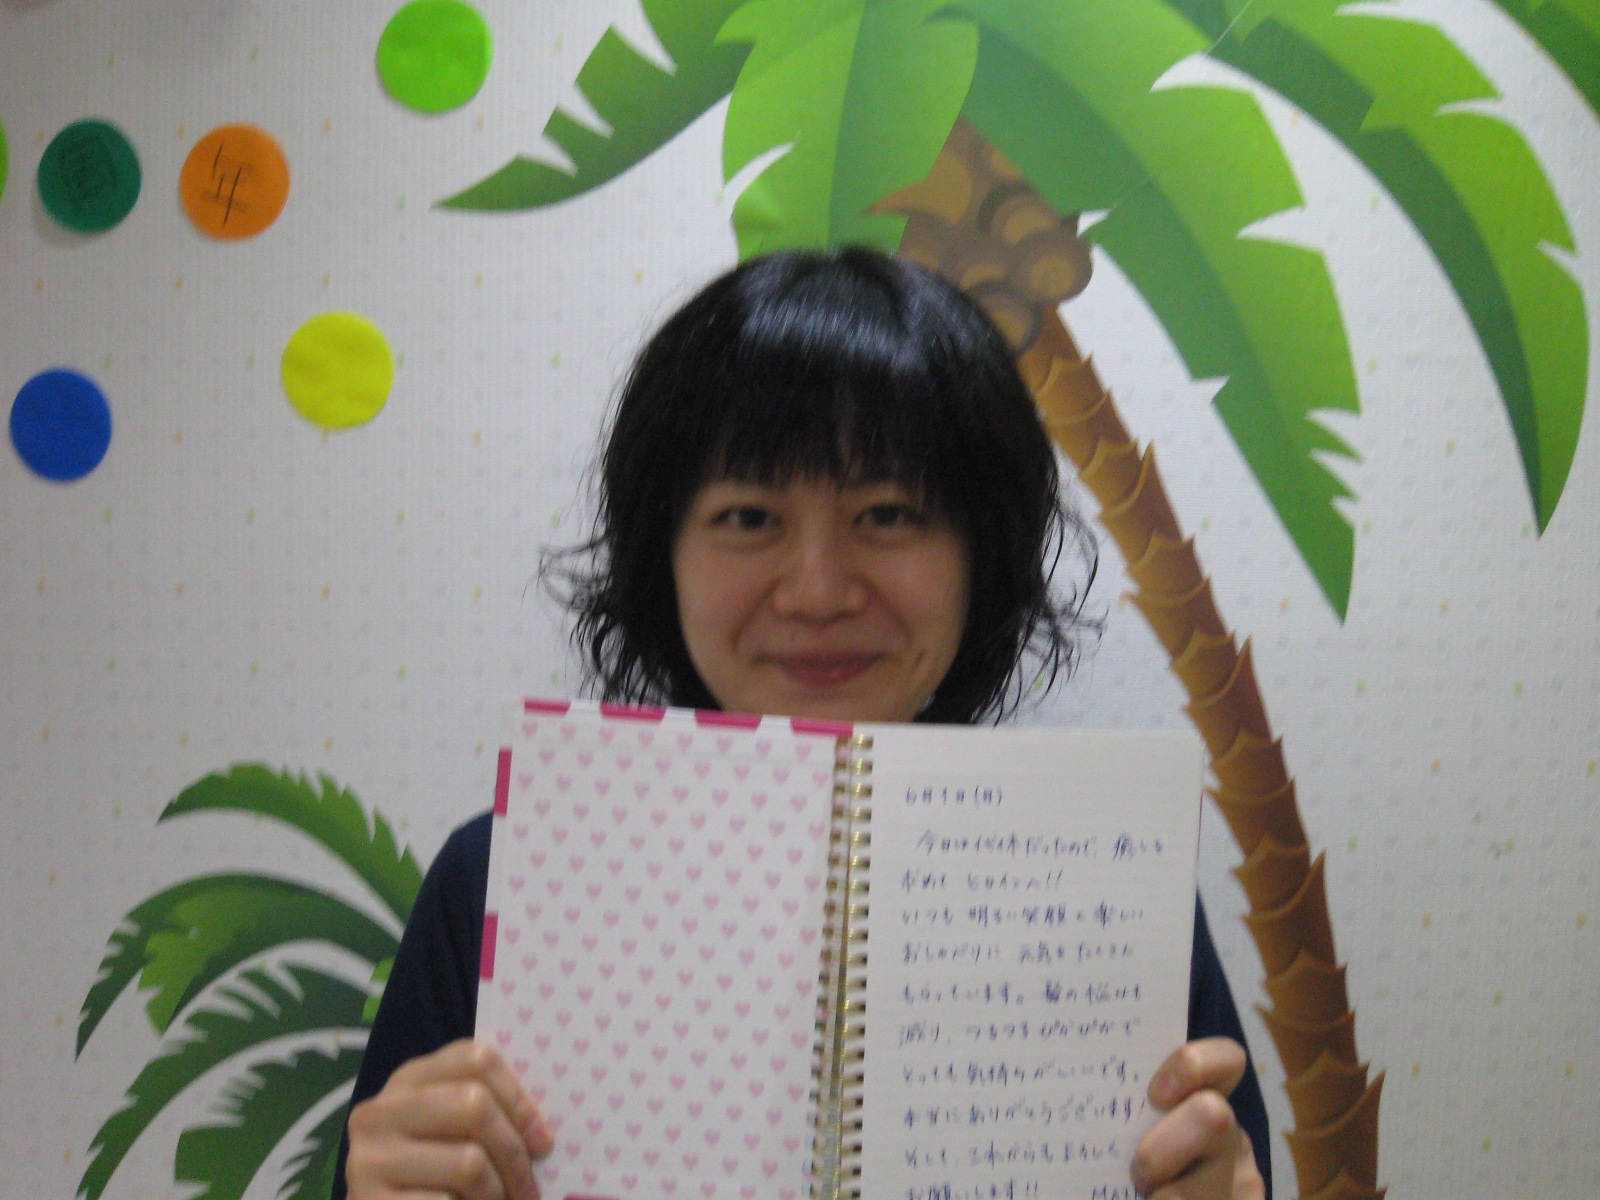 年
6月1日(月)
今日は代休だったので、癒しを
求めて ヒロインへ!!
いつも 明るい笑顔と楽しい
おしゃべりに 元気をたくさん
もらっています。髪の悩みも
減り、つるつるぴかぴかで
とっても気持ちがいいです。
本当にありがとうございます!
そして、これからもよろしく
お願いします!!